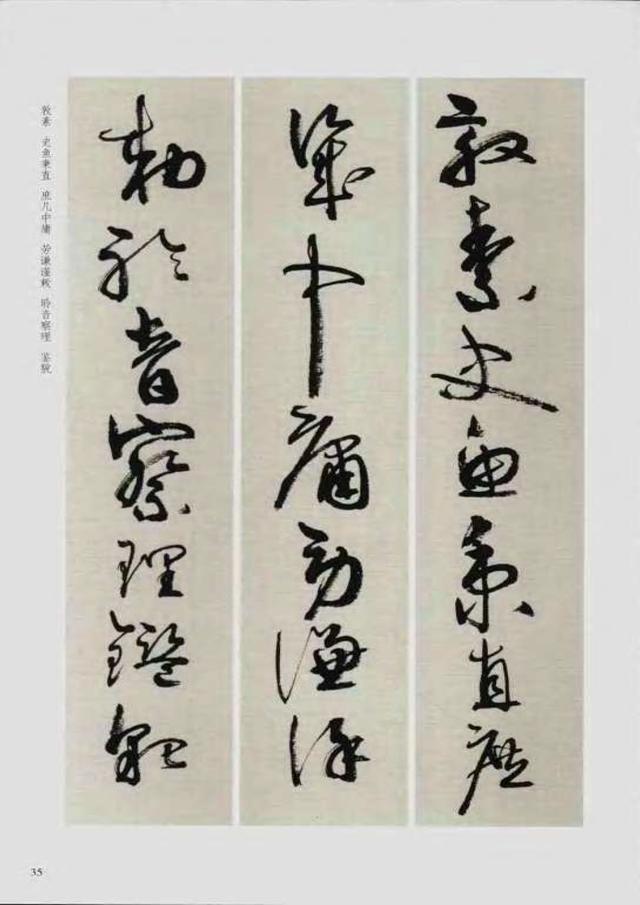 敦素史鱼秉直庶
几中庸劳谦谨
勑聆音察理鑑貌
敦素 史鱼秉直 庶几中庸 劳谦谨敕 聆音察理 鉴貌
35